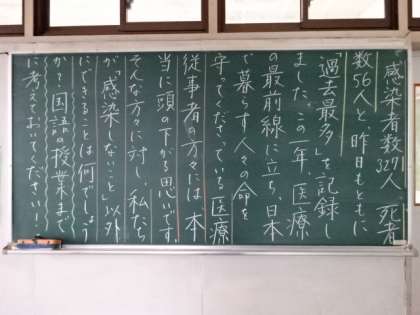 感染者数3271、死者
数56人と、昨日もともに
「過去最多」を記録し
ました。この一年、医療
の最前線に立ち、日本
で暮らす人々の命を
守ってくださっている医療
従事者の方々には本
当に頭の下がる思いです。
そんな方々に対し、私たち
が「感染しないこと」以外
にできることは何でしょう
か？国語の授業まで
に考えておいてください！